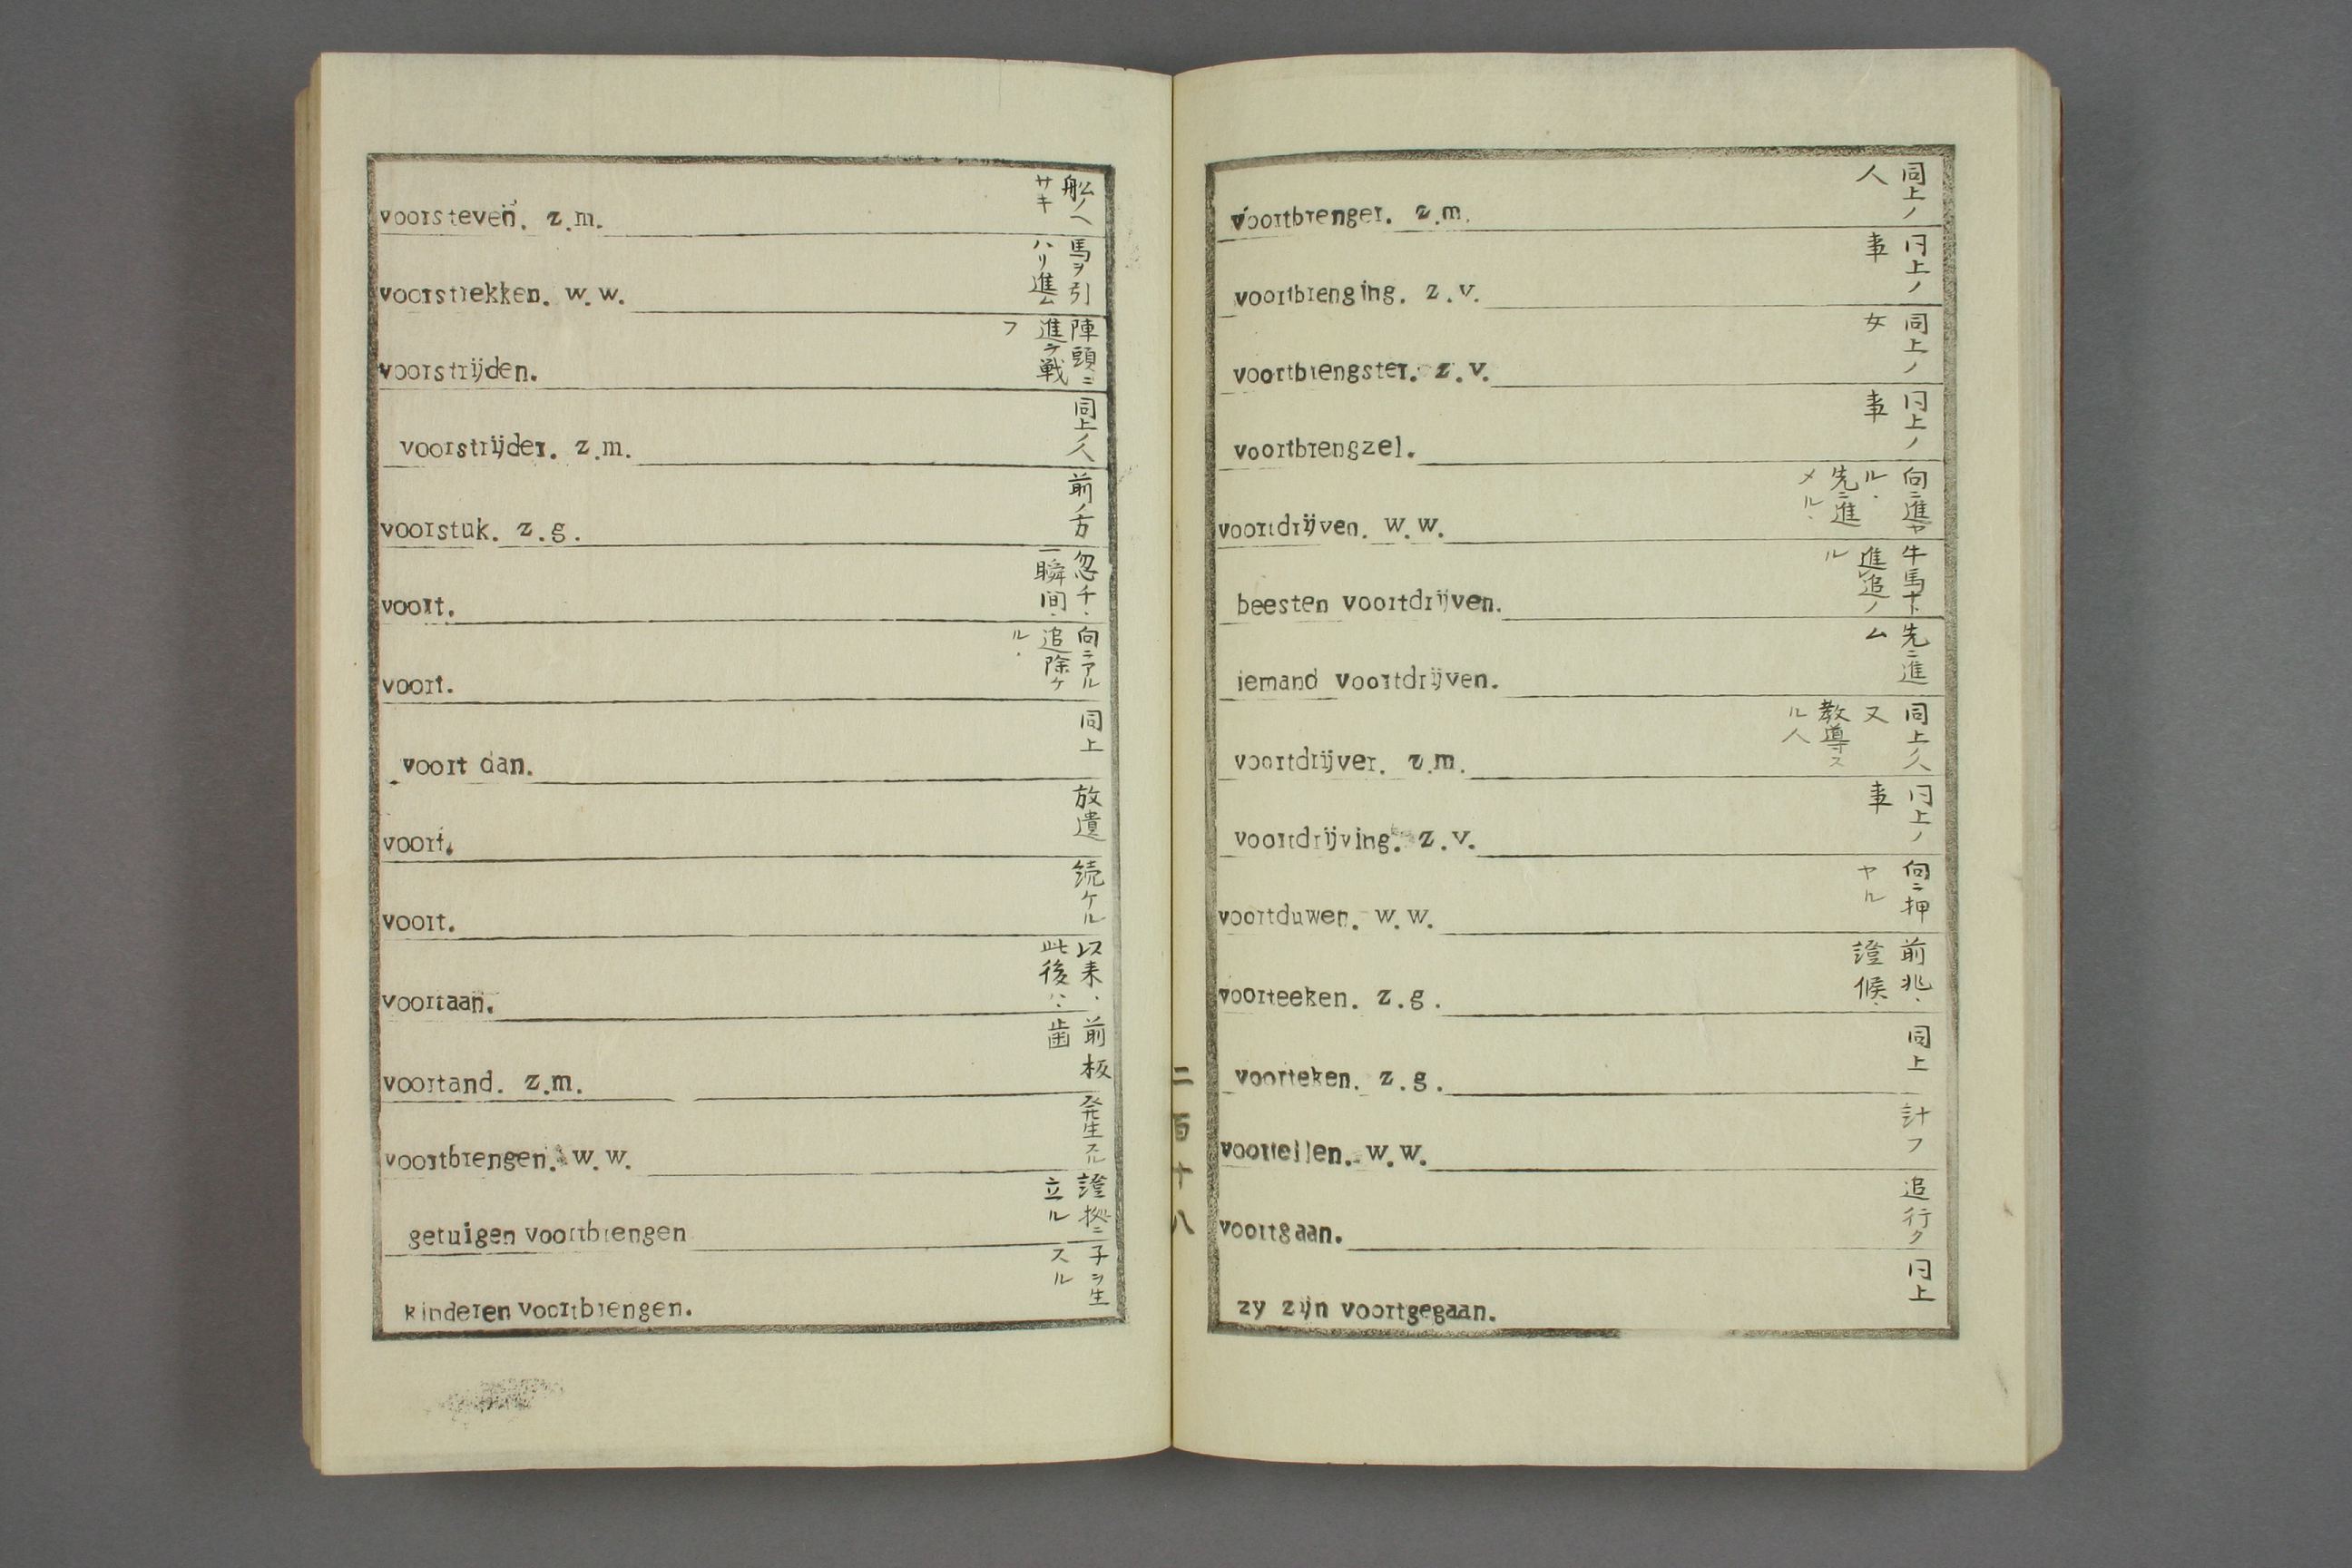 voorsteven. z.m. 舩ノヘサキ
voorstrekken. w.w. 馬ヲ引ハリ進ム
voorstrijden. 陣頭ニ進テ戦フ
voorstrijder. z.m. 同上ノ人
voorstuk. z.g. 前ノ方
voort. 忽チ.一瞬间.
voort. 向ニアル追除ケル.
voort dan. 同上
voort. 放遺
voort. 続ケル
voortaan. 以来.此後ハ.
voortand. z.m. 前板歯
voortbrengen. w.w. 発生スル
getuigen voortbrengen 證拠ニ立ル
kinderen voortbrengen. 子ヲ生スル
voortbrenger. z.m. 同上ノ人
voortbrenging. z.v. 同上ノ事
voortbrengster. z.v. 同上ノ女
voortbrengzel. 同上ノ事
voortdrijven. w.w. 向ニ進ヤル.先ニ進メル.
beesten voortdrijven. 牛馬ナト進追ノル
iemand voortdrijven. 先ニ進ム
voortdrijver. z.m. 同上ノ人又教導スル人
voortdrijving. z.v. 同上ノ事
voortduwen. w.w. 向ニ押ヤル
voorteeken. z.g. 前兆.證候.
voorteken. z.g. 同上
voortellen. w.w. 計フ
voortgaan. 追行ク
zy zijn voortgegaan. 同上
二百十八